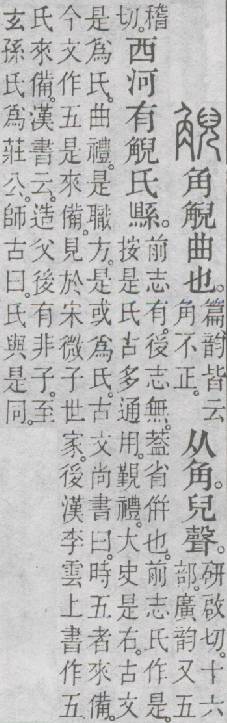 觬 角觬曲也。篇韵皆云角不正。从角。兒聲。硏啟切。十六部。廣韵又五
稽切。西河有觬氏縣。前志有。後志無。葢省倂也。前志氏作是。按是氏古多通用。覲禮。大史是右。古文
是爲氏。曲禮。是職方。是或爲氏。古文尚書曰。時五者來備。
今文作五是來備。見於宋微子世家。後漢李雲上書作五
氏來備。漢書云。造父後有非子。至
玄孫氏爲莊公。師古曰。氏與是同。